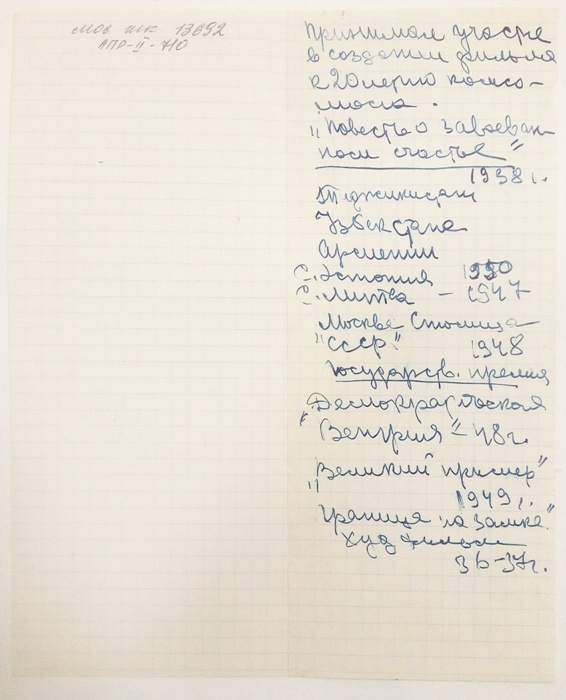 МОС НК 13692
АПР-II-710
Принимал участие
в создании фильма
к 20летию комсо-
мола.
"Повесть о завоеван-
ном счастье"
1938 г.
Таджикистан
Узбекстана
Армении
С. Эстония 1950
С. Литва - 1947
Москва Столица
"СССР" 1948
Государств. премия
"Демократическая
Венгрия" - 48 г.
"Великий пример"
1949 г.
"Граница на замке"
худ фильм
36-37 г.